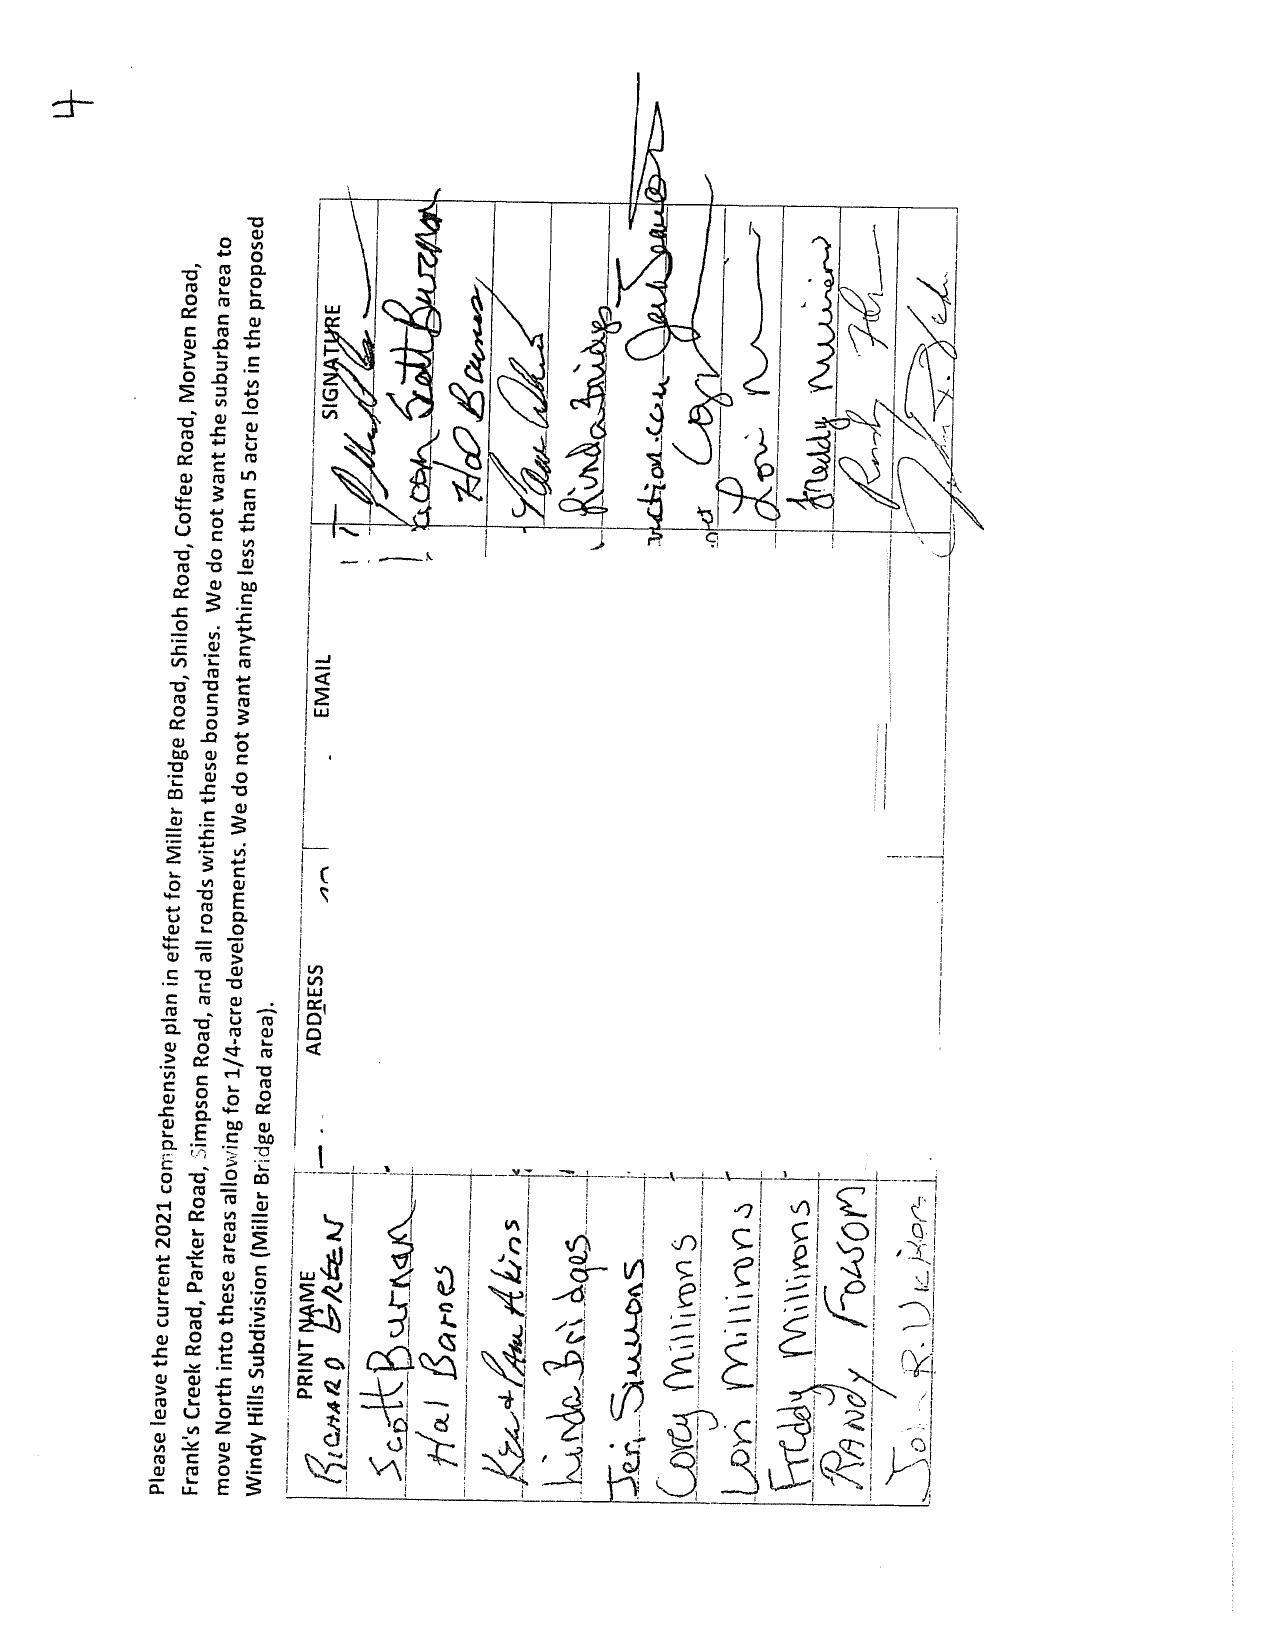 4
Please leave the current 2021 comprehensive plan in effect for Miller Bridge Road, Shiloh Road, Coffee Road, Morven Road,
Frank's Creek Road, Parker Road, Simpson Road, and all roads within these boundaries. We do not want the suburban area to
move North into these areas allowing for 1/4-acre developments. We do not want anything less than 5 acre lots in the proposed
Windy Hills Subdivision (Miller Bridge Road area).
PRINT NAME ADDRESS EMAIL SIGNATURE
RICHARD GREEN
Scott Burnan Scott Burnan
Hal Barnes Hal Barnes
Ken & Pam Akins Pam Akins
Linda Bridges Linda Bridges
Jeri Simmons
Corey Millirons Corey
Lori Millirons Lori M
Freddy Millirons Freddy Millirons
RANDY FOLSOM Randy
John R.